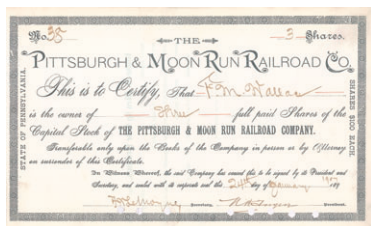 No 38 3 Shares.
THE
PITTSBURGH & MOON RUN RAILROAD CO.
This is to Certify, That F. M. Wallace
is the owner of Three full paid Shares of the
Capital Stock of THE PITTSBURGH & MOON RUN RAILROAD COMPANY.
Transferable only upon the Books of the Company in person or by Attorney
on surrender of this Certificate.
In Witness Whereof, the said Company has caused this to be signed by its President and
Secretary, and sealed with its corporate seal this 24th day of January 189
Secretary, President.
STATE OF PENNSYLVANIA.
SHARES $100 EACH